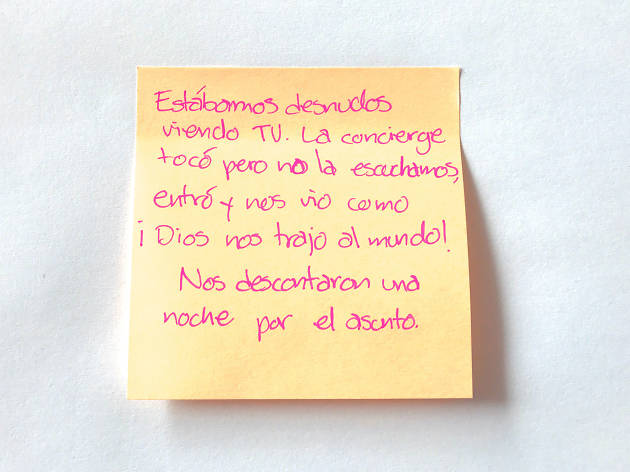 Estábamos desnudos
viendo TV. La concierge
tocó pero no la escuchamos,
entró y nos vio como
¡Dios nos trajo al mundo!
Nos descontaron una
noche por el asunto.